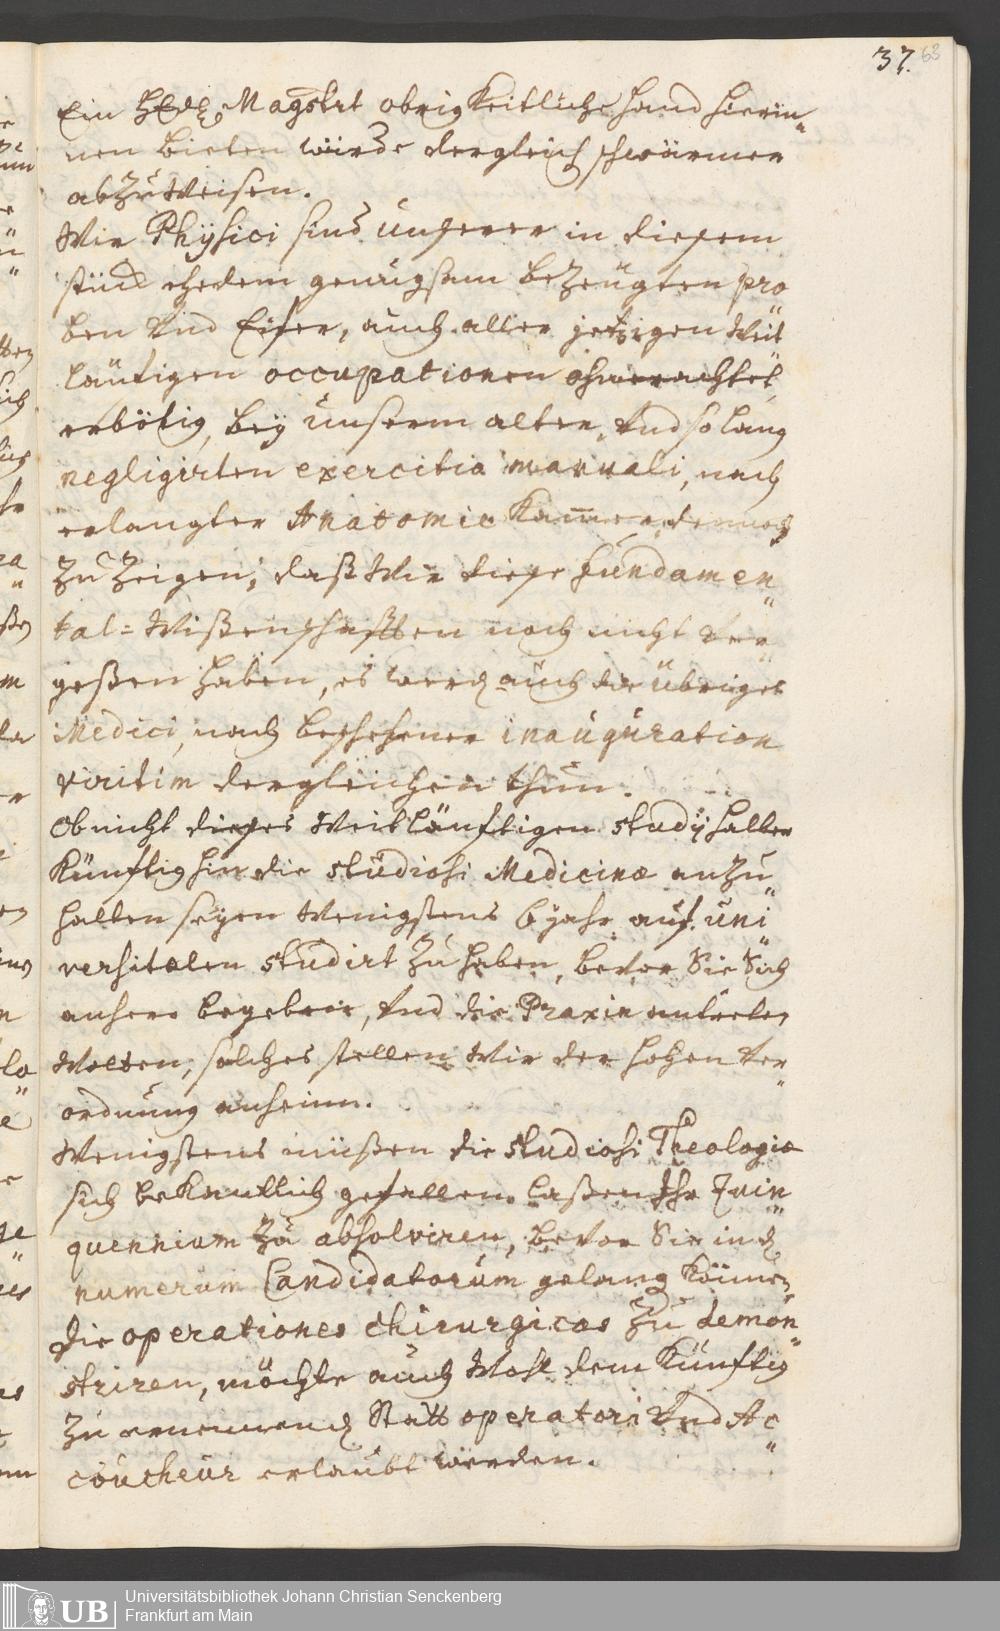 37. 63
Ein HEdl. Magstrt obrigkeitliche Hand hierin„
nen bieten würde dergleich schwärmer
abzuweisen.
Wir Physici sind unserer in diesem
stück ehedem genugsam bezeugten pro„
ben und Eifer, auch aller jetzigen Weit„
läufigen occupationen ohnerachtet,
erbötig, bey unserm alten, und so lang
negligirten exercitio manuali, nach
erlangter Anatomie Kammer, dennoch
zu zeigen, daß Wir diese Fundamen„
tal=Wißenschafften noch nicht ver„
geßen haben, es werd auch die übrigen
Medici, nach beschehener inauguration
viritim dergleichen thun.
Ob nicht dieses Weitläuftigen studÿ halber
Künftighin die studiosi Medicinæ anzu„
halten seyen Wenigstens 6 jahr auf uni„
versitæten studirt zu haben, bevor Sie Sich
anhero begeben, und die Praxin antreten
Wolten, solches stellen Wir der hohen Ver„
ordnung anheim.
Wenigstens müßen die studiosi Theologiæ
sich bekanntlich gefallen laßen Ihr Quin„
quennium zu absolviren, bevor Sie in d
numerum Candidatorum gelang Können,
Die operationes chirurgicas zu demon„
striren, möchte auch Wohl dem Künftig
zu ernennend Statt operatori Und Ac„
coucheur erlaubt werden.
Universitätsbibliothek Johann Christian Senckenberg
Frankfurt am Main
UB